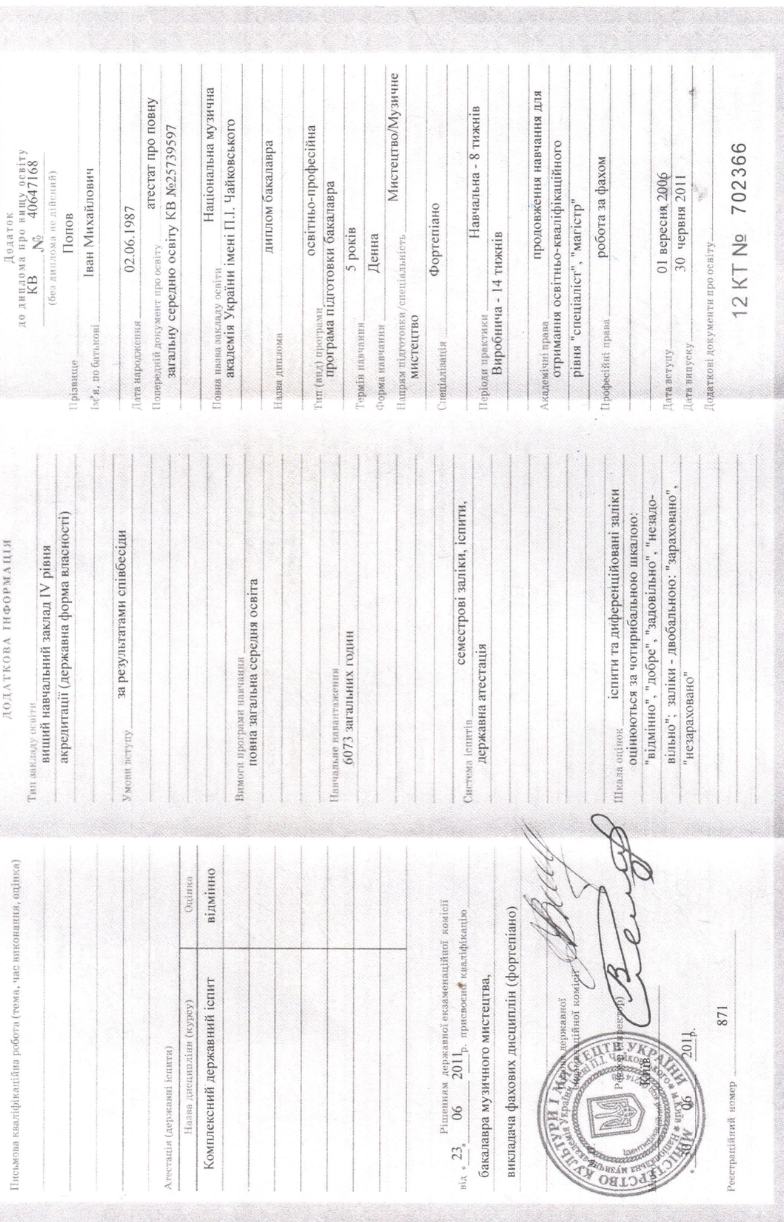 Додаток
до диплома про вищу освіту
КВ № 40647168
(без диплома не дійсний)
Прізвище Попов
Ім'я, по батькові Іван Михайлович
Дата народження 02.06.1987
Попередній документ про освіту атестат про повну
загальну середню освіту КВ №25739597
Повна назва закладу освіти Національна музична
академія України імені П.І. Чайковського
Назва диплома диплом бакалавра
Тип (вид) програми освітньо-професійна
програма підготовки бакалавра
Термін навчання 5 років
Форма навчання Денна
Напрям підготовки /спеціальність Мистецтво/Музичне
мистецтво
Спеціалізація Фортепіано
Періоди практики Навчальна - 8 тижнів
Виробнича - 14 тижнів
Академічні права продовження навчання для
отримання освітньо-кваліфікаційного
рівня "спеціаліст", "магістр"
Професійні права робота за фахом
Дата вступу 01 вересня 2006
Дата випуску 30 червня 2011
Додаткові документи про освіту
12 КТ № 702366
ДОДАТКОВА ІНФОРМАЦІЯ
Тип закладу освіти
вищий навчальний заклад IV рівня
акредитації (державна форма власності)
Умови вступу за результатами співбесіди
Вимоги програми навчання
повна загальна середня освіта
Навчальне навантаження
6073 загальних годин
Система іспитів семестрові заліки, іспити,
державна атестація
Шкала оцінок іспити та диференційовані заліки
оцінюються за чотирибальною шкалою:
"відмінно", "добре", "задовільно", "незадо-
вільно"; заліки - двобальною: "зараховано",
"незараховано"
Письмова кваліфікаційна робота (тема, час виконання, оцінка)
Атестація (державні іспити)
Назва дисциплін (курсу) Оцінка
Комплексний державний іспит відмінно
Рішенням державної екзаменаційної комісії
від « 23 » 06 2011 р. присвоєна кваліфікацію
бакалавра музичного мистецтва,
викладача фахових дисциплін (фортепіано)
державної
комісії
Київ
06 2011 р.
МІНІСТЕРСТВО КУЛЬТУРИ І МИСТЕЦТВ УКРАЇНИ
Реєстраційний номер 871